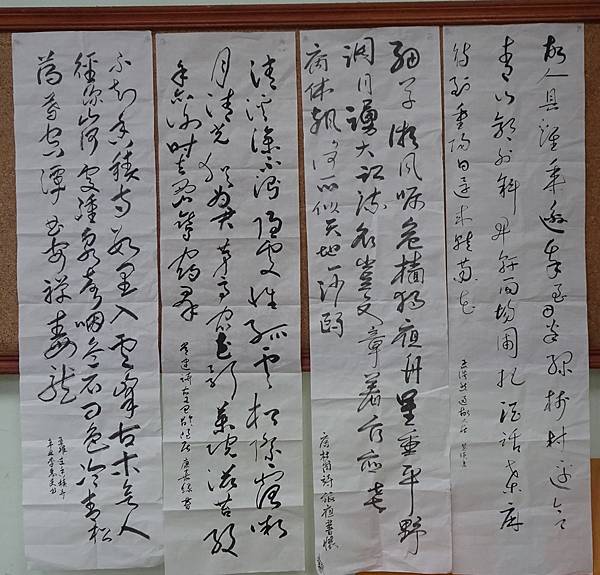 故人具雞黍邀我至田家綠樹村邊合
青山郭外斜開軒面場圃把酒話桑麻
待到重陽日還來就菊花
孟浩然過故人莊
細草微風岸危檣獨夜舟星垂平野
闊月湧大江流名豈文章著官應老
病休飄飄何所似天地一沙鷗
唐杜甫詩旅夜書懷
清溪深不測隱處唯孤雲松際露微
月清光猶為君茅亭宿花影藥院滋苔紋
余亦謝時去西山鸞鶴群
常建詩宿王昌齡隱居
不知香積寺數里入雲峰古木無人
徑深山何處鐘泉聲咽危石日色冷青松
薄暮空潭曲安禪制毒龍